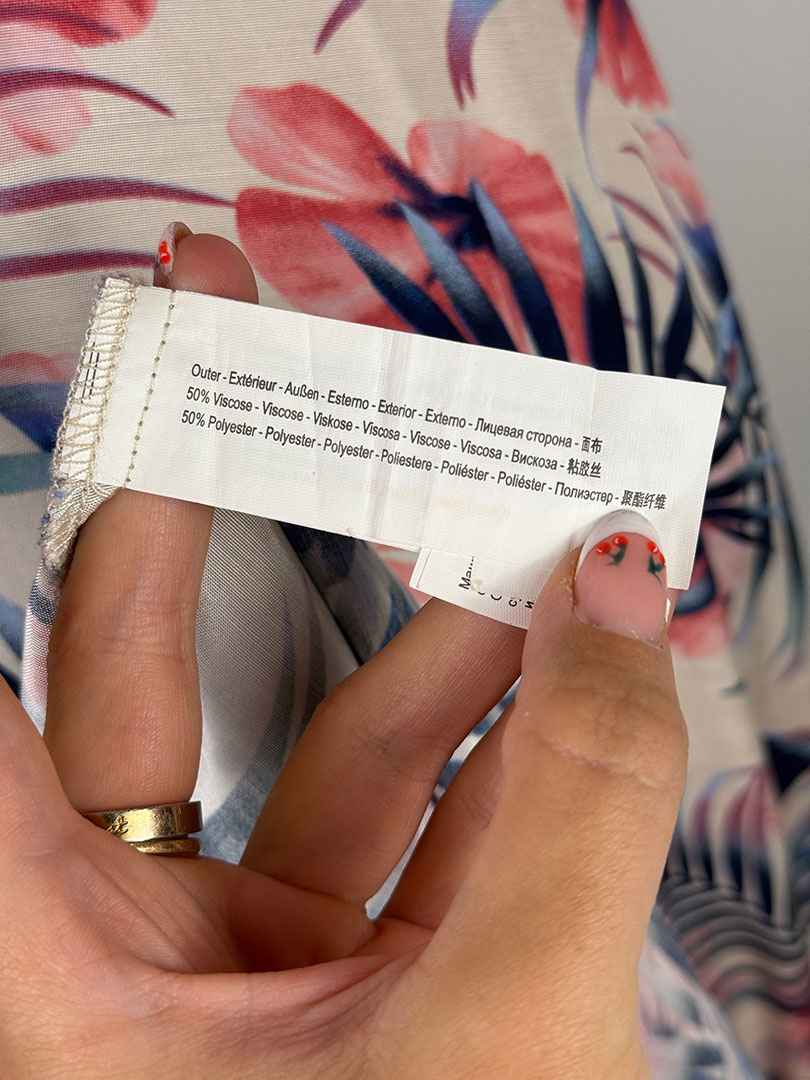 Outer - Extérieur - Außen - Esterno - Exterior - Externo - Лицевая сторона - 面布
50% Viscose - Viscose - Viskose - Viscosa - Viscose - Viscosa - Вискоза - 粘胶丝
50% Polyester - Polyester - Polyester - Poliestere - Poliéster - Poliéster - Полиэстер - 聚酯纤维